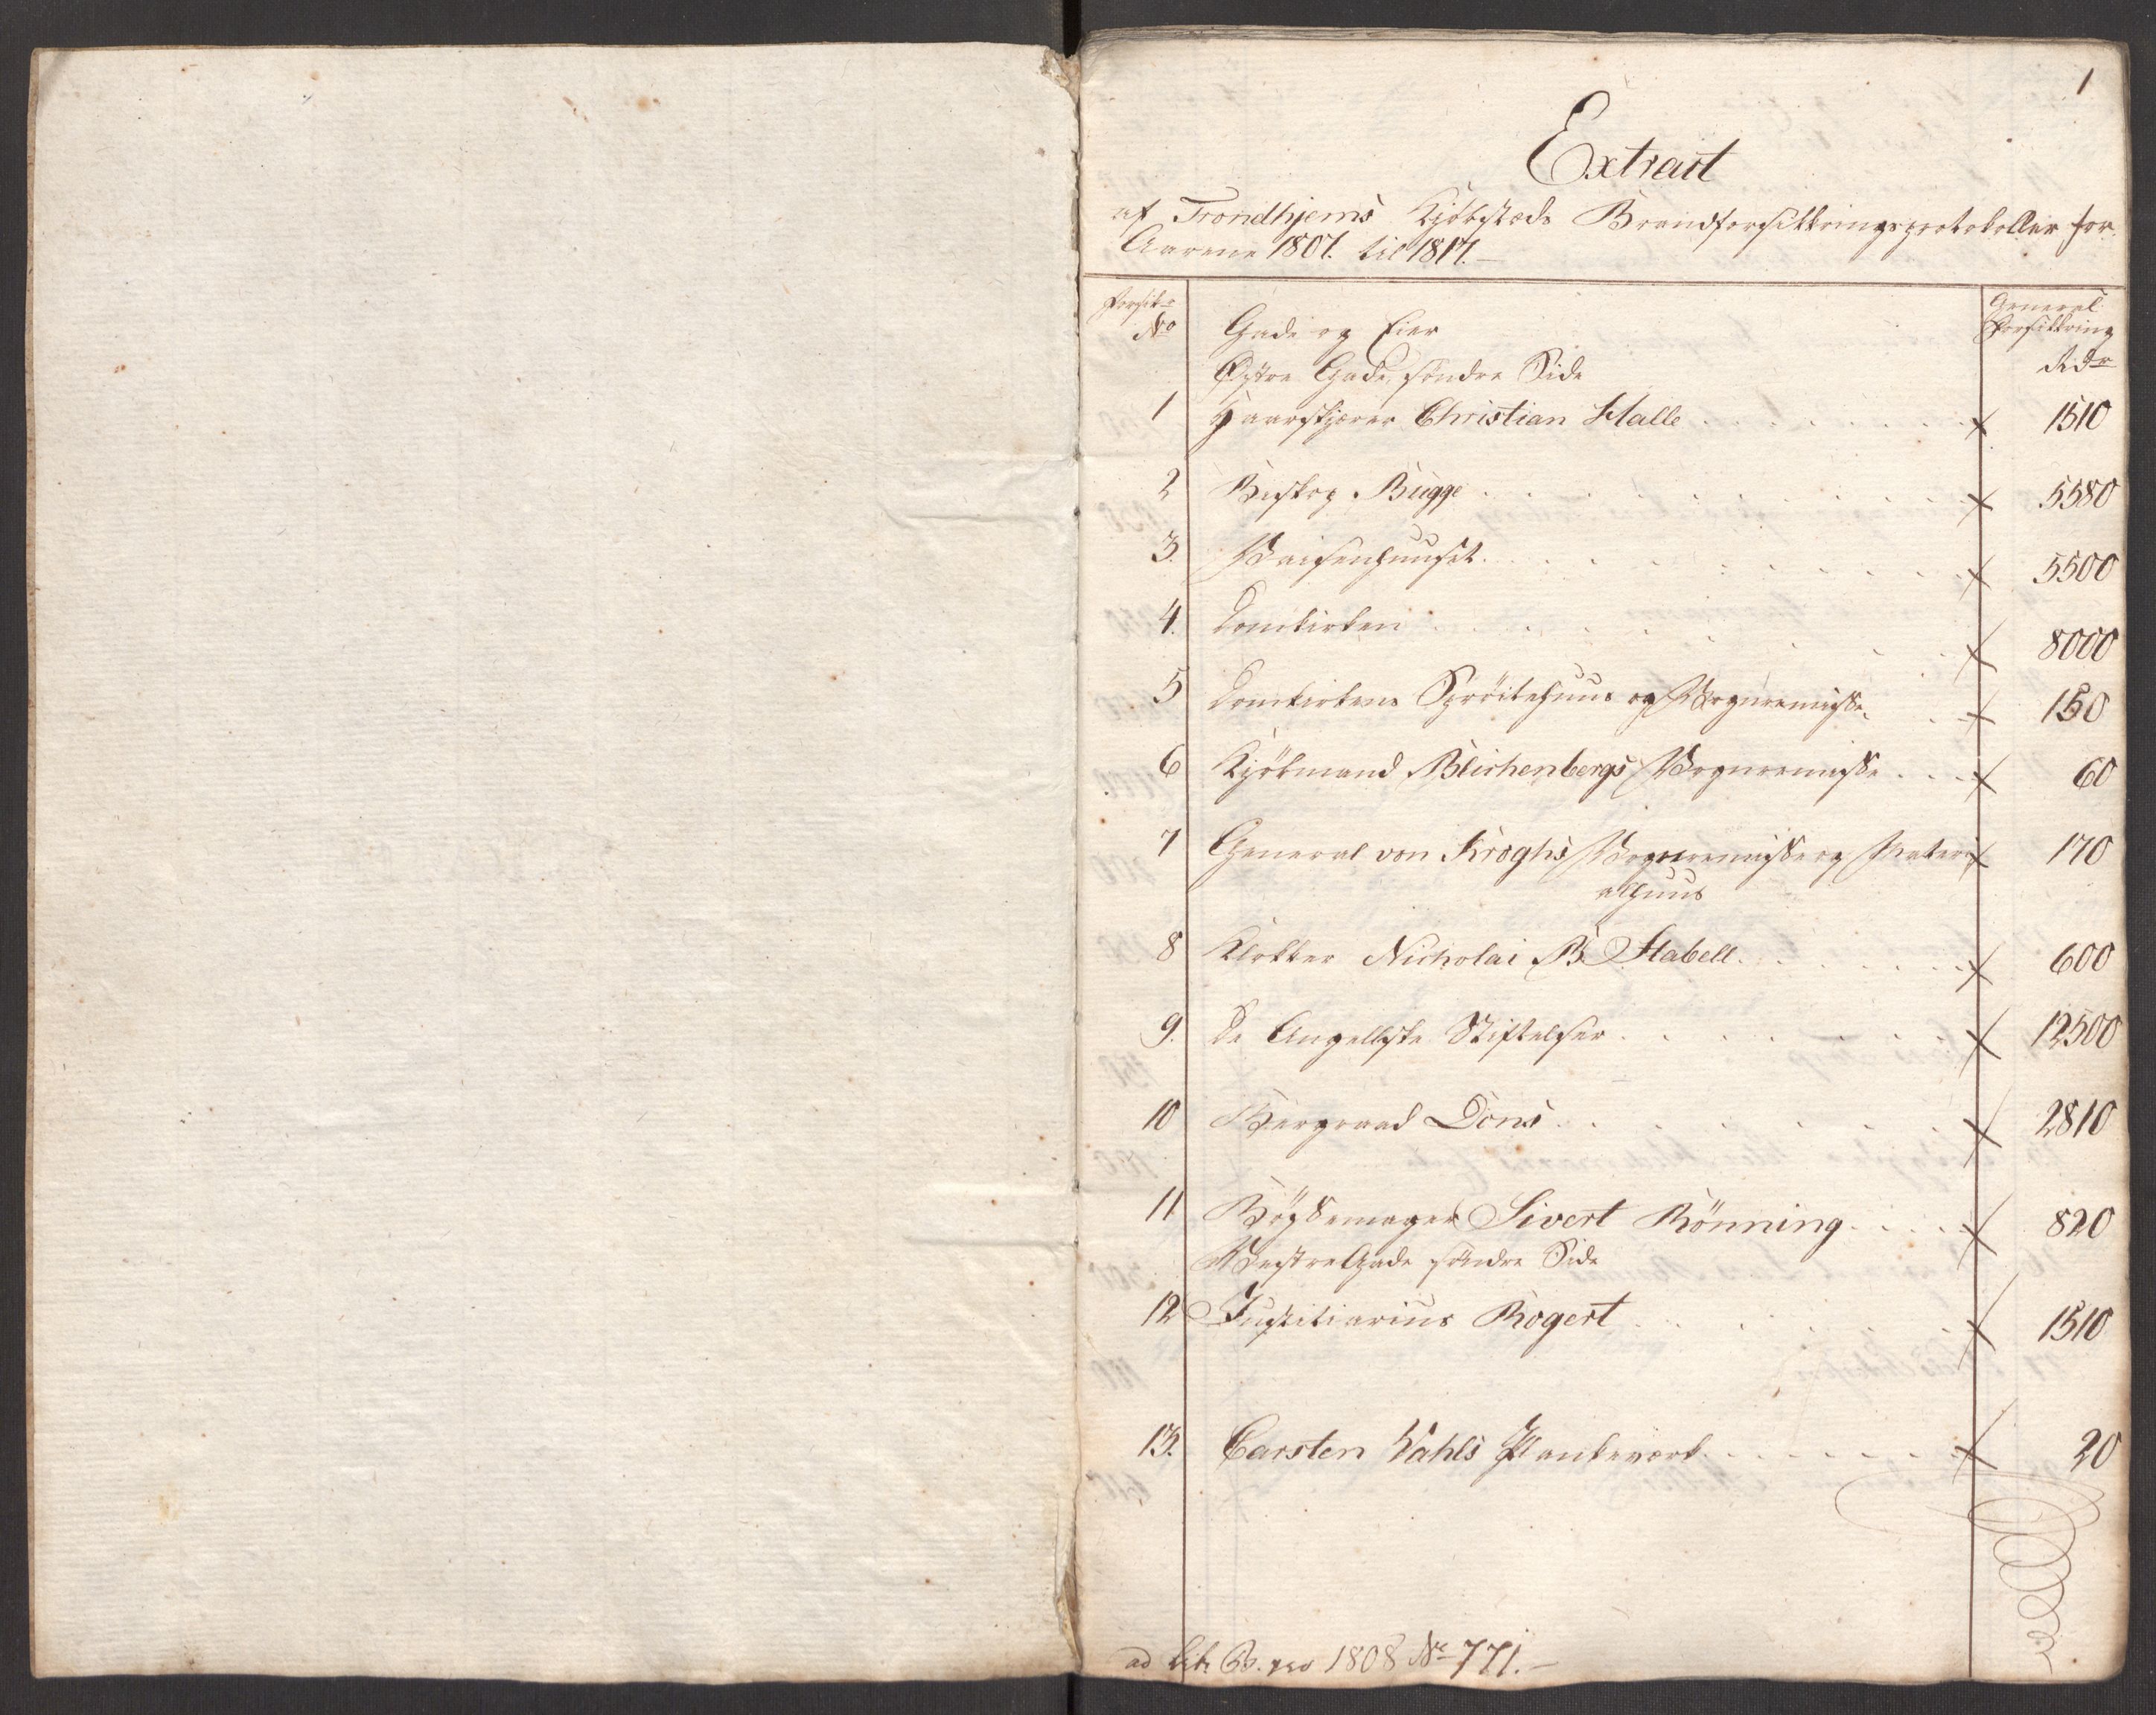 1
Extract
af Trondhjems Kjöbstæds Brandforsikkringsprotokoller for
Aarene 1807. til 1817.
Forsik:
No
Gade og Eier
General
Forsikkring
Rdr
Østre Gade, søndre Side
1 Haarskjærer Christian Halle . . . . . . . . x 1510
2 Biskop Bugge . . . . . . . . x 5580
3. Vaisenhuuset . . . . . . . . x 5500
4. Domkirken . . . . . . . . x 8000
5 Domkirkens Spröitehuus og Vognremisse . . x 150
6 Kjöbmand Blichenbergs Vognremisse . . . x 60
7 General von Kroghs Vognremisse og Materi x 170
alhuus
8 Klokker Nicholai B. Stabell . . . . . . . x 600
9. De Angellske Stiftelser . . . . . . . . x 12500
10 Bergraad Dons . . . . . . . . x 2810
11 Bögsemager Sivert Rönning . . . . x 820
Vestre Gade søndre Side
12 Justitiarius Rogert . . . . . . . x 1510
13. Carsten Wahls Plankeværk . . . . . . . x 20
ad Litr. B. pro 1808 No 771.